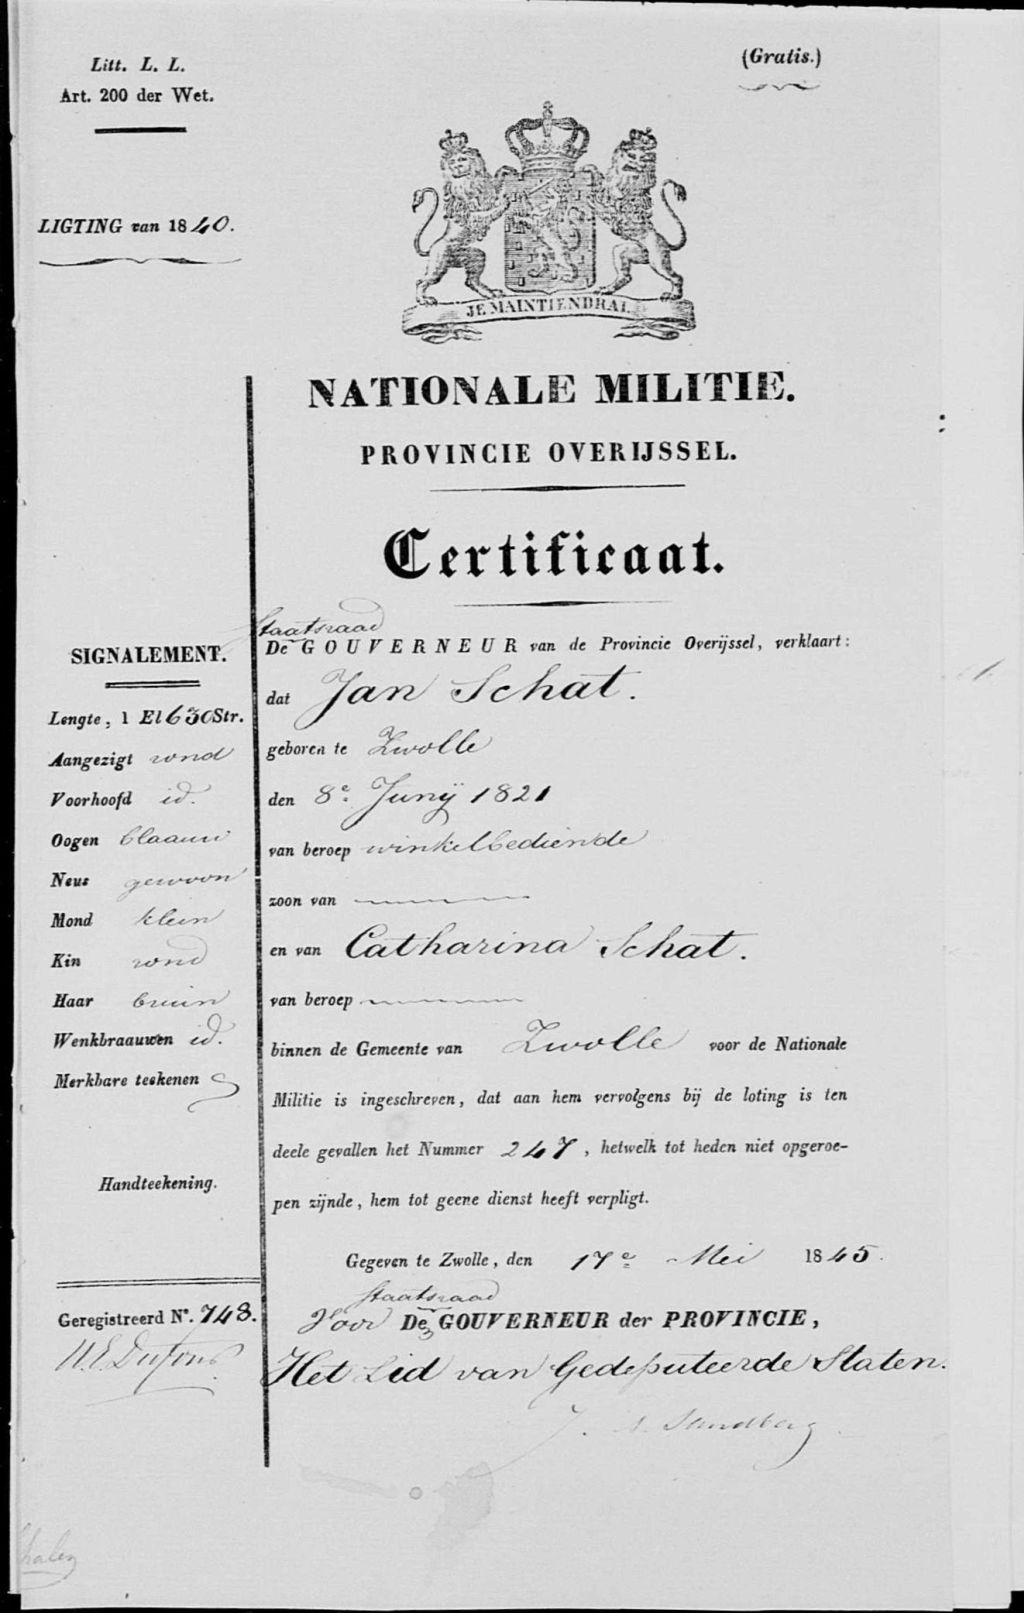 Litt. L. L.
(Gratis.)
Art. 200 der Wet.
LIGTING van 1840.
JE MAINTIENDRAI.
NATIONALE MILITIE.
PROVINCIE OVERIJSSEL.
Certificaat.
SIGNALEMENT.
Lengte, 1 El 630 Str.
Aangezigt rond
Voorhoofd id.
Oogen blaauw
Neus gewoon
Mond klein
Kin rond
Haar bruin
Wenkbraauwen id.
Merkbare teekenen
Handteekening.
Geregistreerd N°. 748.
Staatsraad
De GOUVERNEUR van de Provincie Overijssel, verklaart:
dat Jan Schat.
geboren te Zwolle
den 8e Junij 1821
van beroep winkelbediende
zoon van
en van Catharina Schat.
van beroep
binnen de Gemeente van Zwolle voor de Nationale
Militie is ingeschreven, dat aan hem vervolgens bij de loting is ten
deele gevallen het Nummer 247, hetwelk tot heden niet opgeroe-
pen zijnde, hem tot geene dienst heeft verpligt.
Gegeven te Zwolle, den 17e Mei 1845.
Staatsraad
Voor De GOUVERNEUR der PROVINCIE,
Het Lid van Gedeputeerde Staten.
Sandberg